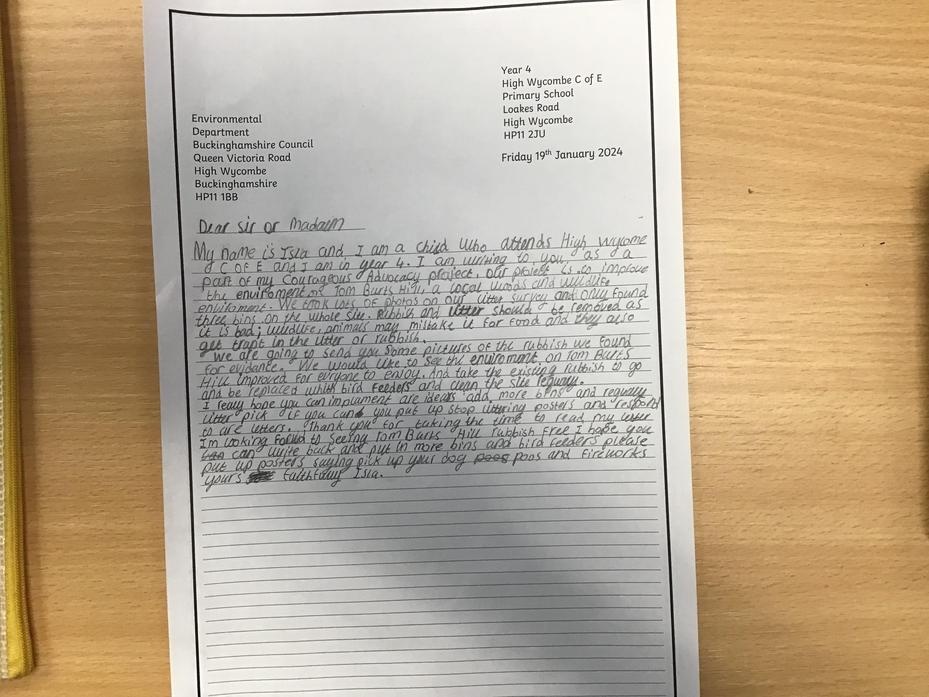 Year 4
High Wycombe C of E
Primary School
Loakes Road
High Wycombe
HP11 2JU
Friday 19th January 2024
Environmental
Department
Buckinghamshire Council
Queen Victoria Road
High Wycombe
Buckinghamshire
HP11 1BB
Dear sir or Madaem
My name is Isla and I am a child who attends High Wycome
C OF E and I am in year 4. I am writing to you as a
part of my Courageous Advocacy project. Our project is to improve
the enviroment of Tom Burts Hill, a local woods and wildlife
enviroment. We took lots of photos on our litter survey and only found
three bins on the whole site. Rubbish and litter should be removed as
it is bad; wildlife, animals may mistake it for food and they also
get trapt in the litter or rubbish.
We are going to send you some pictures of the rubbish we found
for evidance. We would like to see the enviroment on Tom Burts
Hill improved for evryone to enjoy. And take the existing rubbish to go
and be replaced whith bird feeders and clean the site
I really hope you can implament are idears add more bins and
litter pick if you can you put up stop littring posters and respond
to are letters. Thank you for taking the time to read my letter
Im looking forwd to seeing Tom Burts Hill rubbish free I hope you
can write back and put in more bins and bird feeders please
put up posters saying pick up your dog poos and fireworks
yours faithfully Isla.